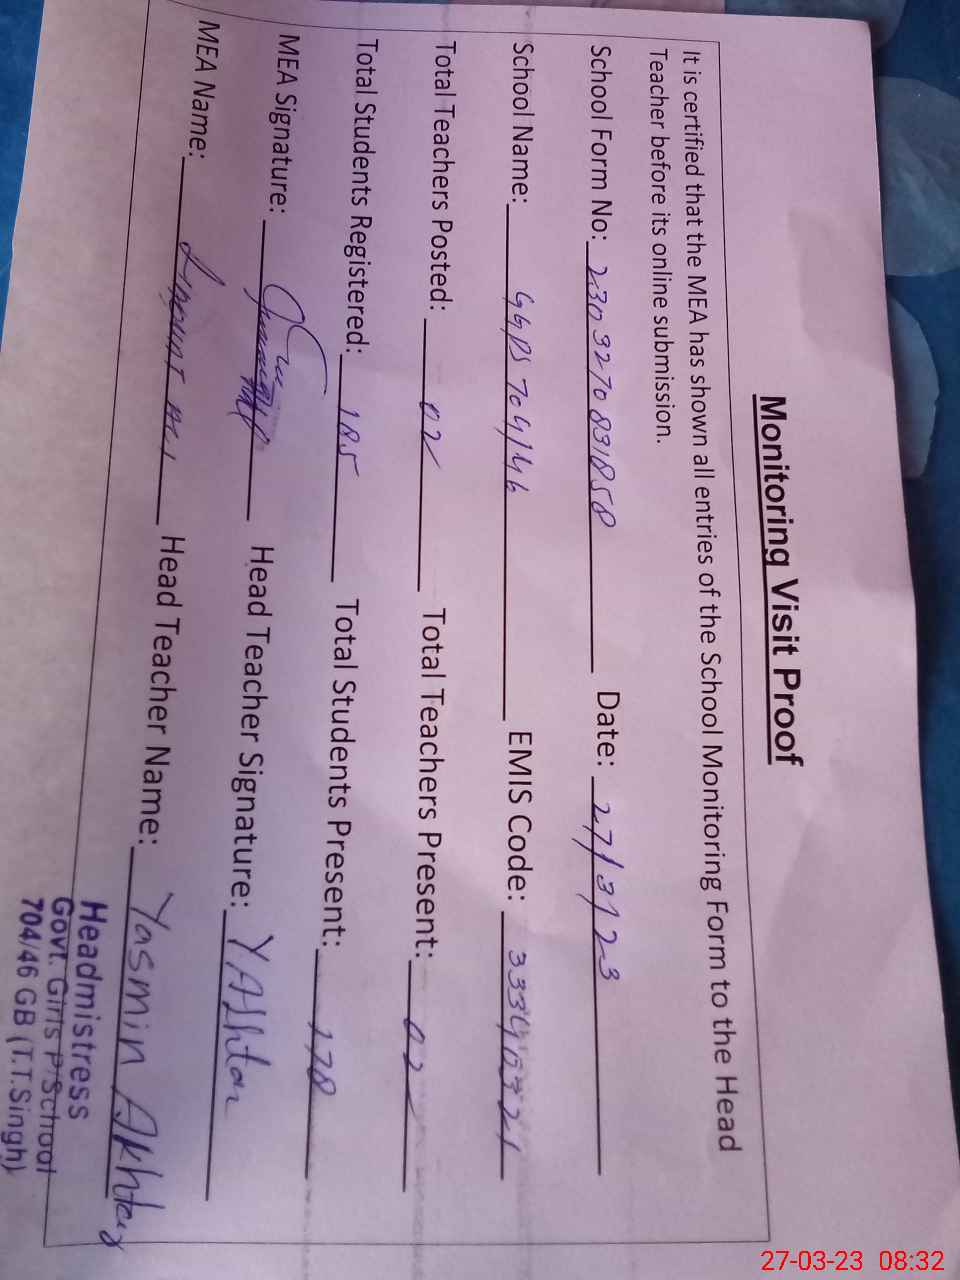 Monitoring Visit Proof
It is certified that the MEA has shown all entries of the School Monitoring Form to the Head
Teacher before its online submission.
School Form No: 230327083858 Date: 27/3/23
School Name: GGPS 704/46 EMIS Code: 33340321
Total Teachers Posted: 02 Total Teachers Present: 02
Total Students Registered: 185 Total Students Present: 178
MEA Signature: Head Teacher Signature: YAkhtar
MEA Name: Head Teacher Name: Yasmin Akhtar
Headmistress
Govt. Girls P/School
704/46 GB (T.T.Singh)
27-03-23 08:32